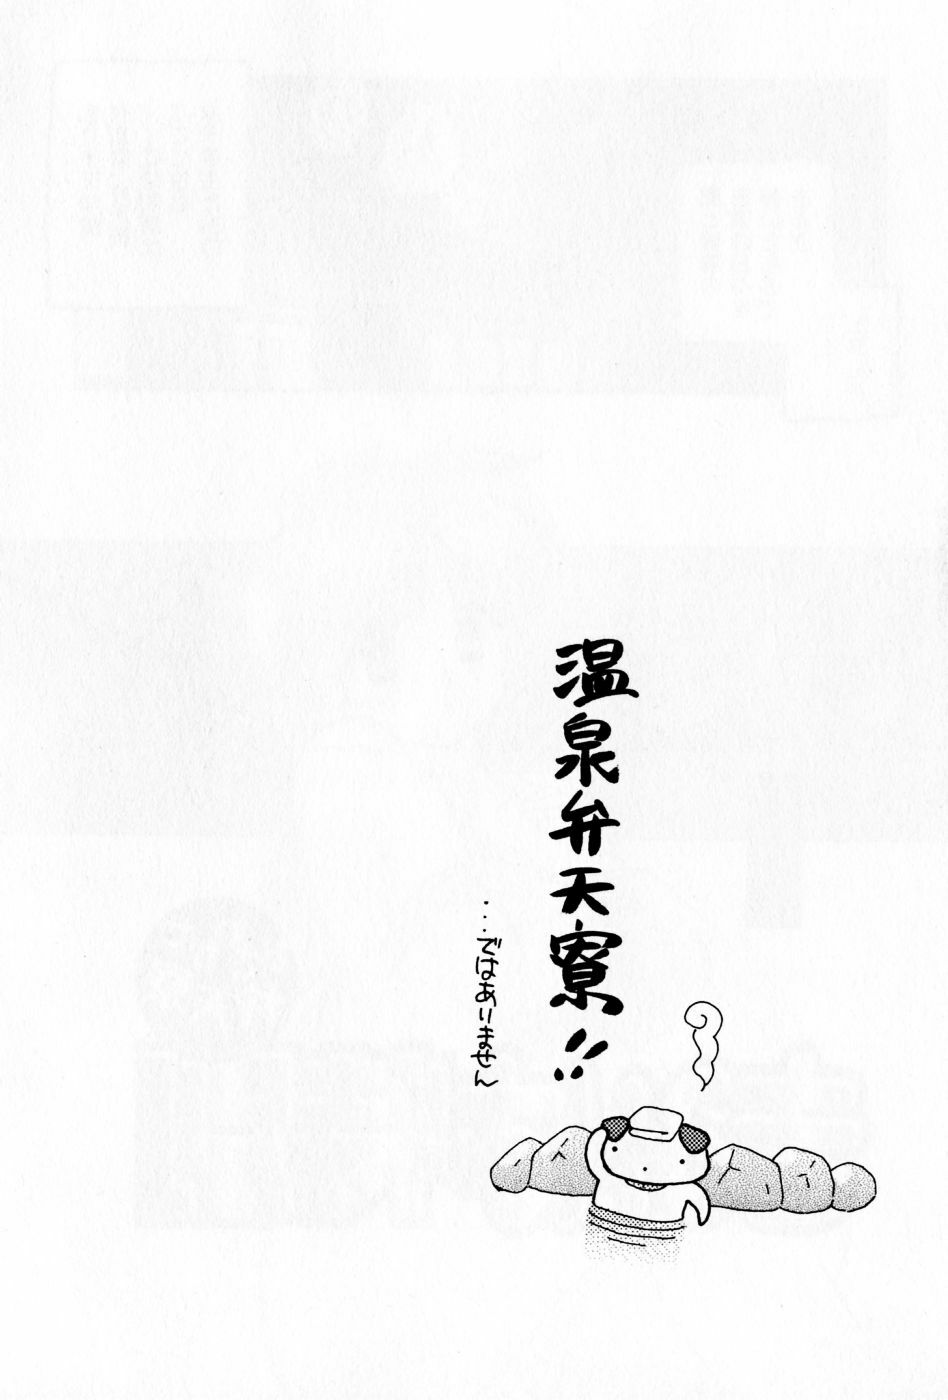 温泉弁天寮!!
・・・ではありません